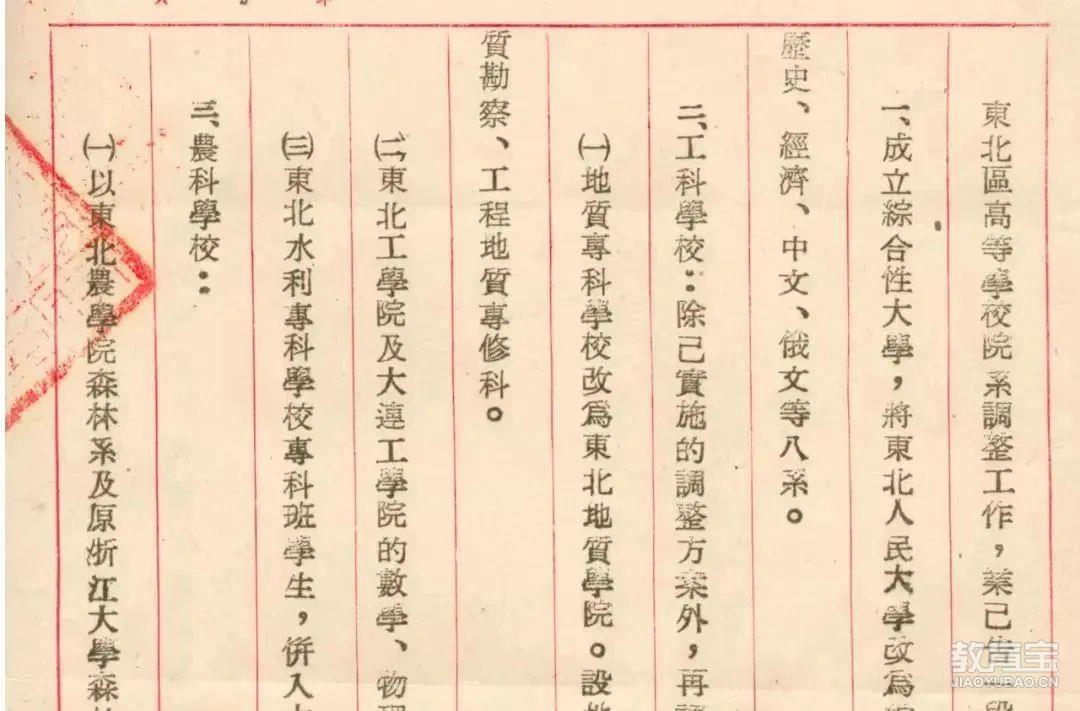 東北區高等學校院系調整工作，業已告一段
一、成立綜合性大學，將東北人民大學改爲綜
歷史、經濟、中文、俄文等八系。
二、工科學校：除已實施的調整方案外，再調
㈠地質專科學校改爲東北地質學院。設地
質勘察、工程地質專修科。
㈡東北工學院及大連工學院的數學、物理
㈢東北水利專科學校專科班學生，併入大
三、農科學校：
㈠以東北農學院森林系及原浙江大學森林
教育宝
JIAOYUBAO.CN